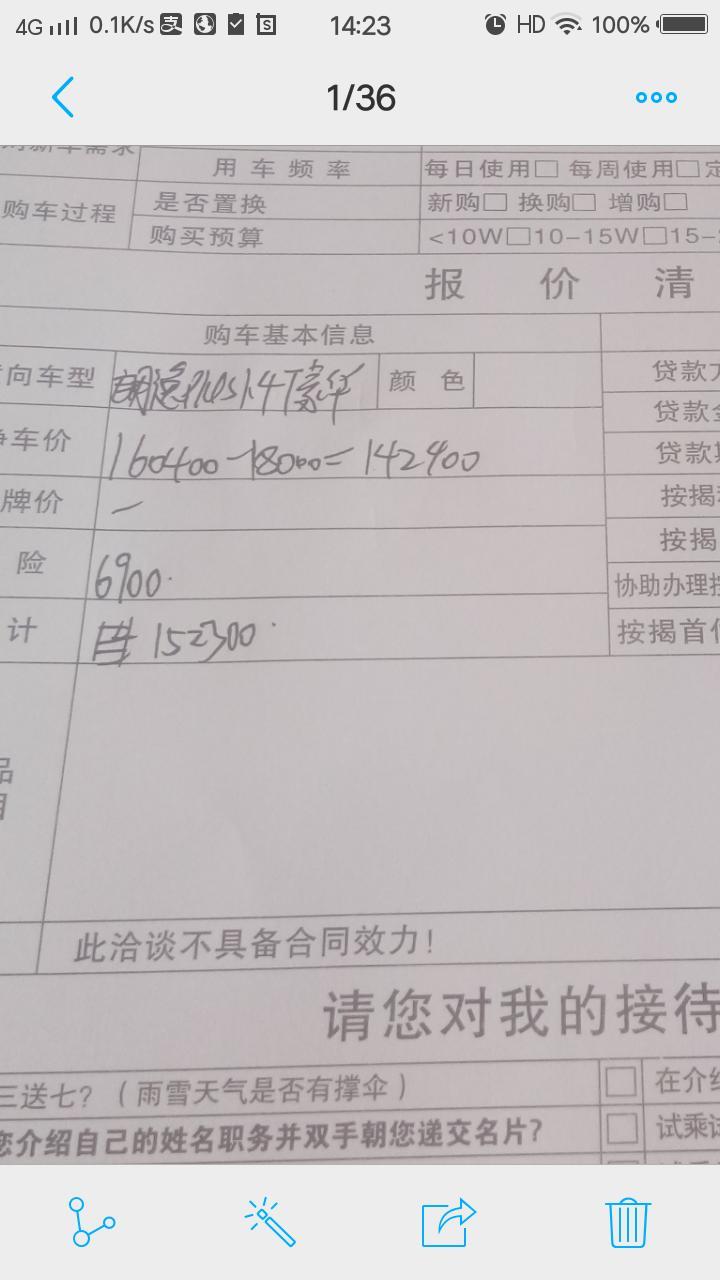 4G 0.1K/s 14:23 HD 100%
1/36
用车频率 每日使用□ 每周使用□
购车过程 是否置换 新购□ 换购□ 增购□
购买预算 <10W□10-15W□15-
报价清
购车基本信息
向车型 朗逸PLUS1.4T豪华 颜色 贷款
贷款
车价 160400-18000=142400 贷款
牌价 一 按揭
按揭
险 6900. 协助办理按
计 152300 按揭首付
此洽谈不具备合同效力!
请您对我的接待
三送七?(雨雪天气是否有撑伞) □ 在介绍
您介绍自己的姓名职务并双手朝您递交名片? □ 试乘试